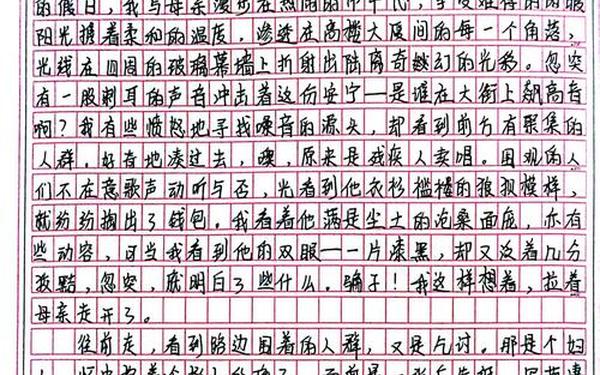 的假日，我与母亲漫步在热闹的中
阳光携着柔和的温度，渗透在高楼大厦间的每一个角落，
光线在四周的玻璃幕墙上折射出陆离奇幻的光移。忽突
有一股刺耳的声音冲击着这份安宁——是谁在大街上飙高音
啊？我有些愤怒地寻找噪音的源头，却看到前方有聚集的
人群。好奇地凑过去，噢，原来是残疾人卖唱。围观的人
们不在意歌声动听与否，光看到他衣衫褴褛的狼狈模样，
就纷纷掏出了钱包。我看着他满是尘土的沧桑面庞，亦有
些动容，可当我看到他的双眼——一片漆黑，却又泛着几分
狡黠，忽突，就明白了些什么。骗子！我这样想着，拉着
母亲走开了。
往前走，看到路边围着的人群，又是乞讨。那是个妇